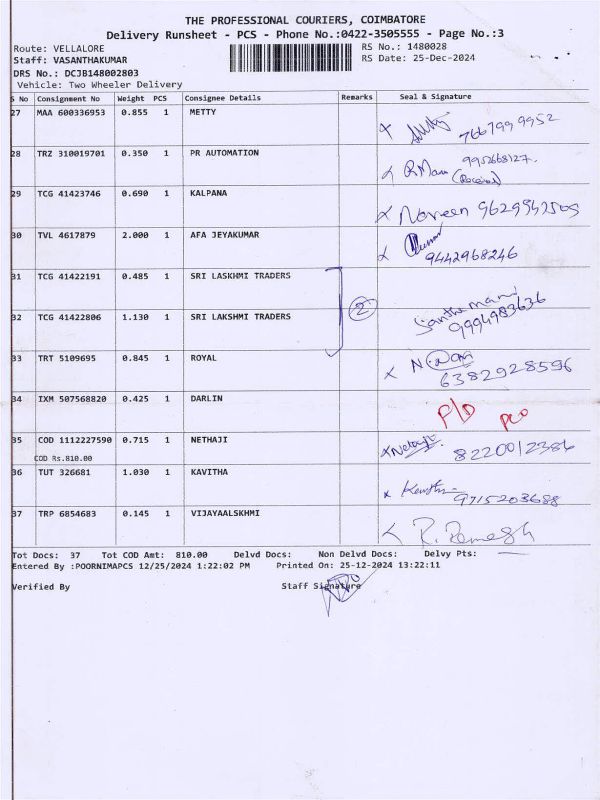 THE PROFESSIONAL COURIERS, COIMBATORE
Delivery Runsheet - PCS - Phone No.:0422-3505555 - Page No.:3
Route: VELLALORE RS No.: 1480028
Staff: VASANTHAKUMAR RS Date: 25-Dec-2024
DRS No.: DCJB148002803
Vehicle: Two Wheeler Delivery
S No Consignment No Weight PCS Consignee Details Remarks Seal & Signature
27 MAA 600336953 0.855 1 METTY x 7667999952
28 TRZ 310019701 0.350 1 PR AUTOMATION x R.Mani 9952668127.
(Received)
29 TCG 41423746 0.690 1 KALPANA x Naveen 9629942509
30 TVL 4617879 2.000 1 AFA JEYAKUMAR x 9442968246
31 TCG 41422191 0.485 1 SRI LASKHMI TRADERS
2
32 TCG 41422806 1.130 1 SRI LAKSHMI TRADERS 9994983636
33 TRT 5109695 0.845 1 ROYAL x 6382928596
34 IXM 507568820 0.425 1 DARLIN P/D
35 COD 1112227590 0.715 1 NETHAJI x 8220012386
COD Rs.810.00
36 TUT 326681 1.030 1 KAVITHA x 9715203688
37 TRP 6854683 0.145 1 VIJAYAALSKHMI x R. Ramesh
Tot Docs: 37 Tot COD Amt: 810.00 Delvd Docs: Non Delvd Docs: Delvy Pts:
Entered By :POORNIMAPCS 12/25/2024 1:22:02 PM Printed On: 25-12-2024 13:22:11
Verified By Staff Signature